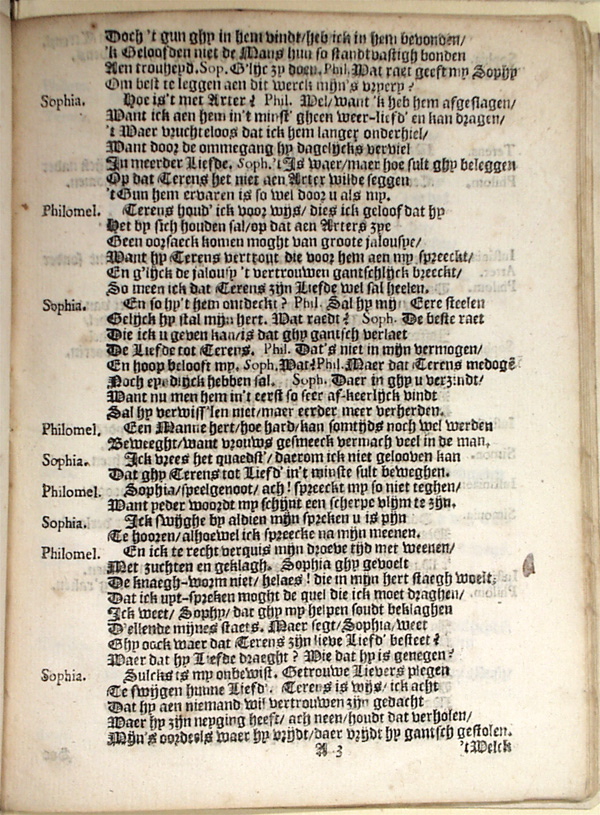 Doch 't gun ghy in hem vindt/heb ick in hem bevonden/
'k Geloofden niet de Mans hun so standtvastigh bonden
Aen trouheyd. Sop. G'lijc zy doen. Phil. Wat raet geeft my Sophy
Om best te leggen aen dit werck mijn's vryery?
Sophia. Hoe is't mer Arter? Phil. Wel/want 'k heb hem afgeslagen/
Want ick aen hem in't minst' gheen weer-liefd' en kan dragen/
't Waer vruchteloos dat ick hem langer onderhiel/
Want door de ommegang hy dagelijcks verviel
In meerder Liefde. Soph. 't Is waer/maer hoe sult ghy beleggen
Op dat Terens het niet aen Arter wilde seggen
't Gun hem ervaren is so wel door u als my.
Philomel. Terens houd' ick voor wijs/dies ick geloof dat hy
Het by sich houden sal/op dat aen Arters zye
Geen oorsaeck komen moght van groote jalousye/
Want hy Terens vertrout die voor hem aen my spreeckt/
En g'lijck de jalousy 't vertrouwen gantschlijck breeckt/
So meen ick dat Terens zijn Liefde wel sal heelen.
Sophia. En so hy't hem ontdeckt? Phil. Sal hy mijn Eere steelen
Gelijck hy stal mijn hert. Wat raedt? Soph. De beste raet
Die ick u geven kan/is dat ghy gantsch verlaet
De Liefde tot Terens. Phil. Dat's niet in mijn vermogen/
En hoop belooft my. Soph. Wat? Phil. Maer dat Terens medogē
Noch eyndlijck hebben sal. Soph. Daer in ghy u verzindt/
Want nu men hem in't eerst so seer af-keerlijck vindt
Sal hy verwiss'len niet/maer eerder meer verherden.
Philomel. Een Manne hert/hoe hard/kan somtijds noch wel werden
Beweeght/want vrouws gesmeeck vermach veel in de man.
Sophia. Ick vrees het quaedst'/daerom ick niet gelooven kan
Dat ghy Terens tot Liefd' in't minste sult beweghen.
Philomel. Sophia/speelgenoot/ach! spreeckt my so niet teghen/
Want yeder woordt my schijnt een scherpe vlijm te zijn.
Sophia. Ick swijghe by aldien mijn spreken u is pijn
Te hooren/alhoewel ick spreecke na mijn meenen.
Philomel. En ick te recht verquis mijn droeve tijd met weenen/
Met zuchten en geklagh. Sophia ghy gevoelt
De knaegh-worm niet/helaes! die in mijn hert staegh woelt;
Dat ick uyt-spreken moght de quel die ick moet draghen/
Ick weet/Sophy/dat ghy my helpen soudt beklaghen
D'ellende mijnes staets. Maer segt/Sophia/weet
Ghy oock waer dat Terens zijn lieve Liefd' besteet?
Waer dat hy Liefde draeght? Wie dat hy is genegen?
Sophia. Sulcks is my onbewist. Getrouwe Lievers plegen
Te swijgen hunne Liefd'. Terens is wijs/ick acht
Dat hy aen niemand wil vertrouwen zijn gedacht
Waer hy zijn neyging heeft/ach neen/houdt dat verholen/
Mijn's oordeels waer hy vrijdt/daer vrijdt hy gantsch gestolen.
A 3 't Welck